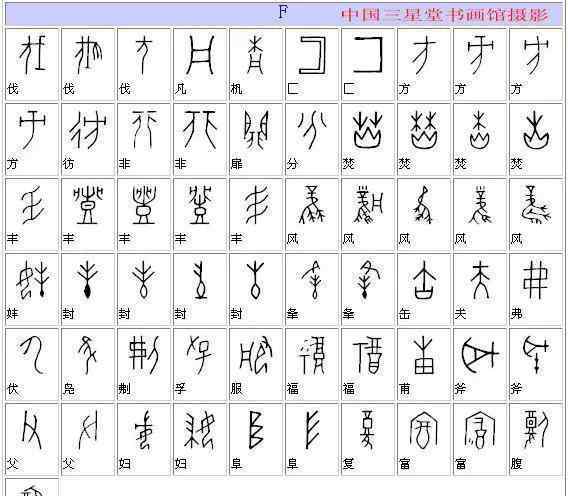 F 中国三星堂书画馆摄影
伐 伐 伐 凡 机 匚 匚 方 方 方
方 彷 非 非 扉 分 焚 焚 焚 焚
丰 丰 丰 丰 丰 风 风 风 风 风
妦 封 封 封 封 夆 夆 缶 夫 弗
伏 凫 刜 孚 服 福 福 甫 斧 斧
父 父 妇 妇 阜 阜 复 富 富 腹